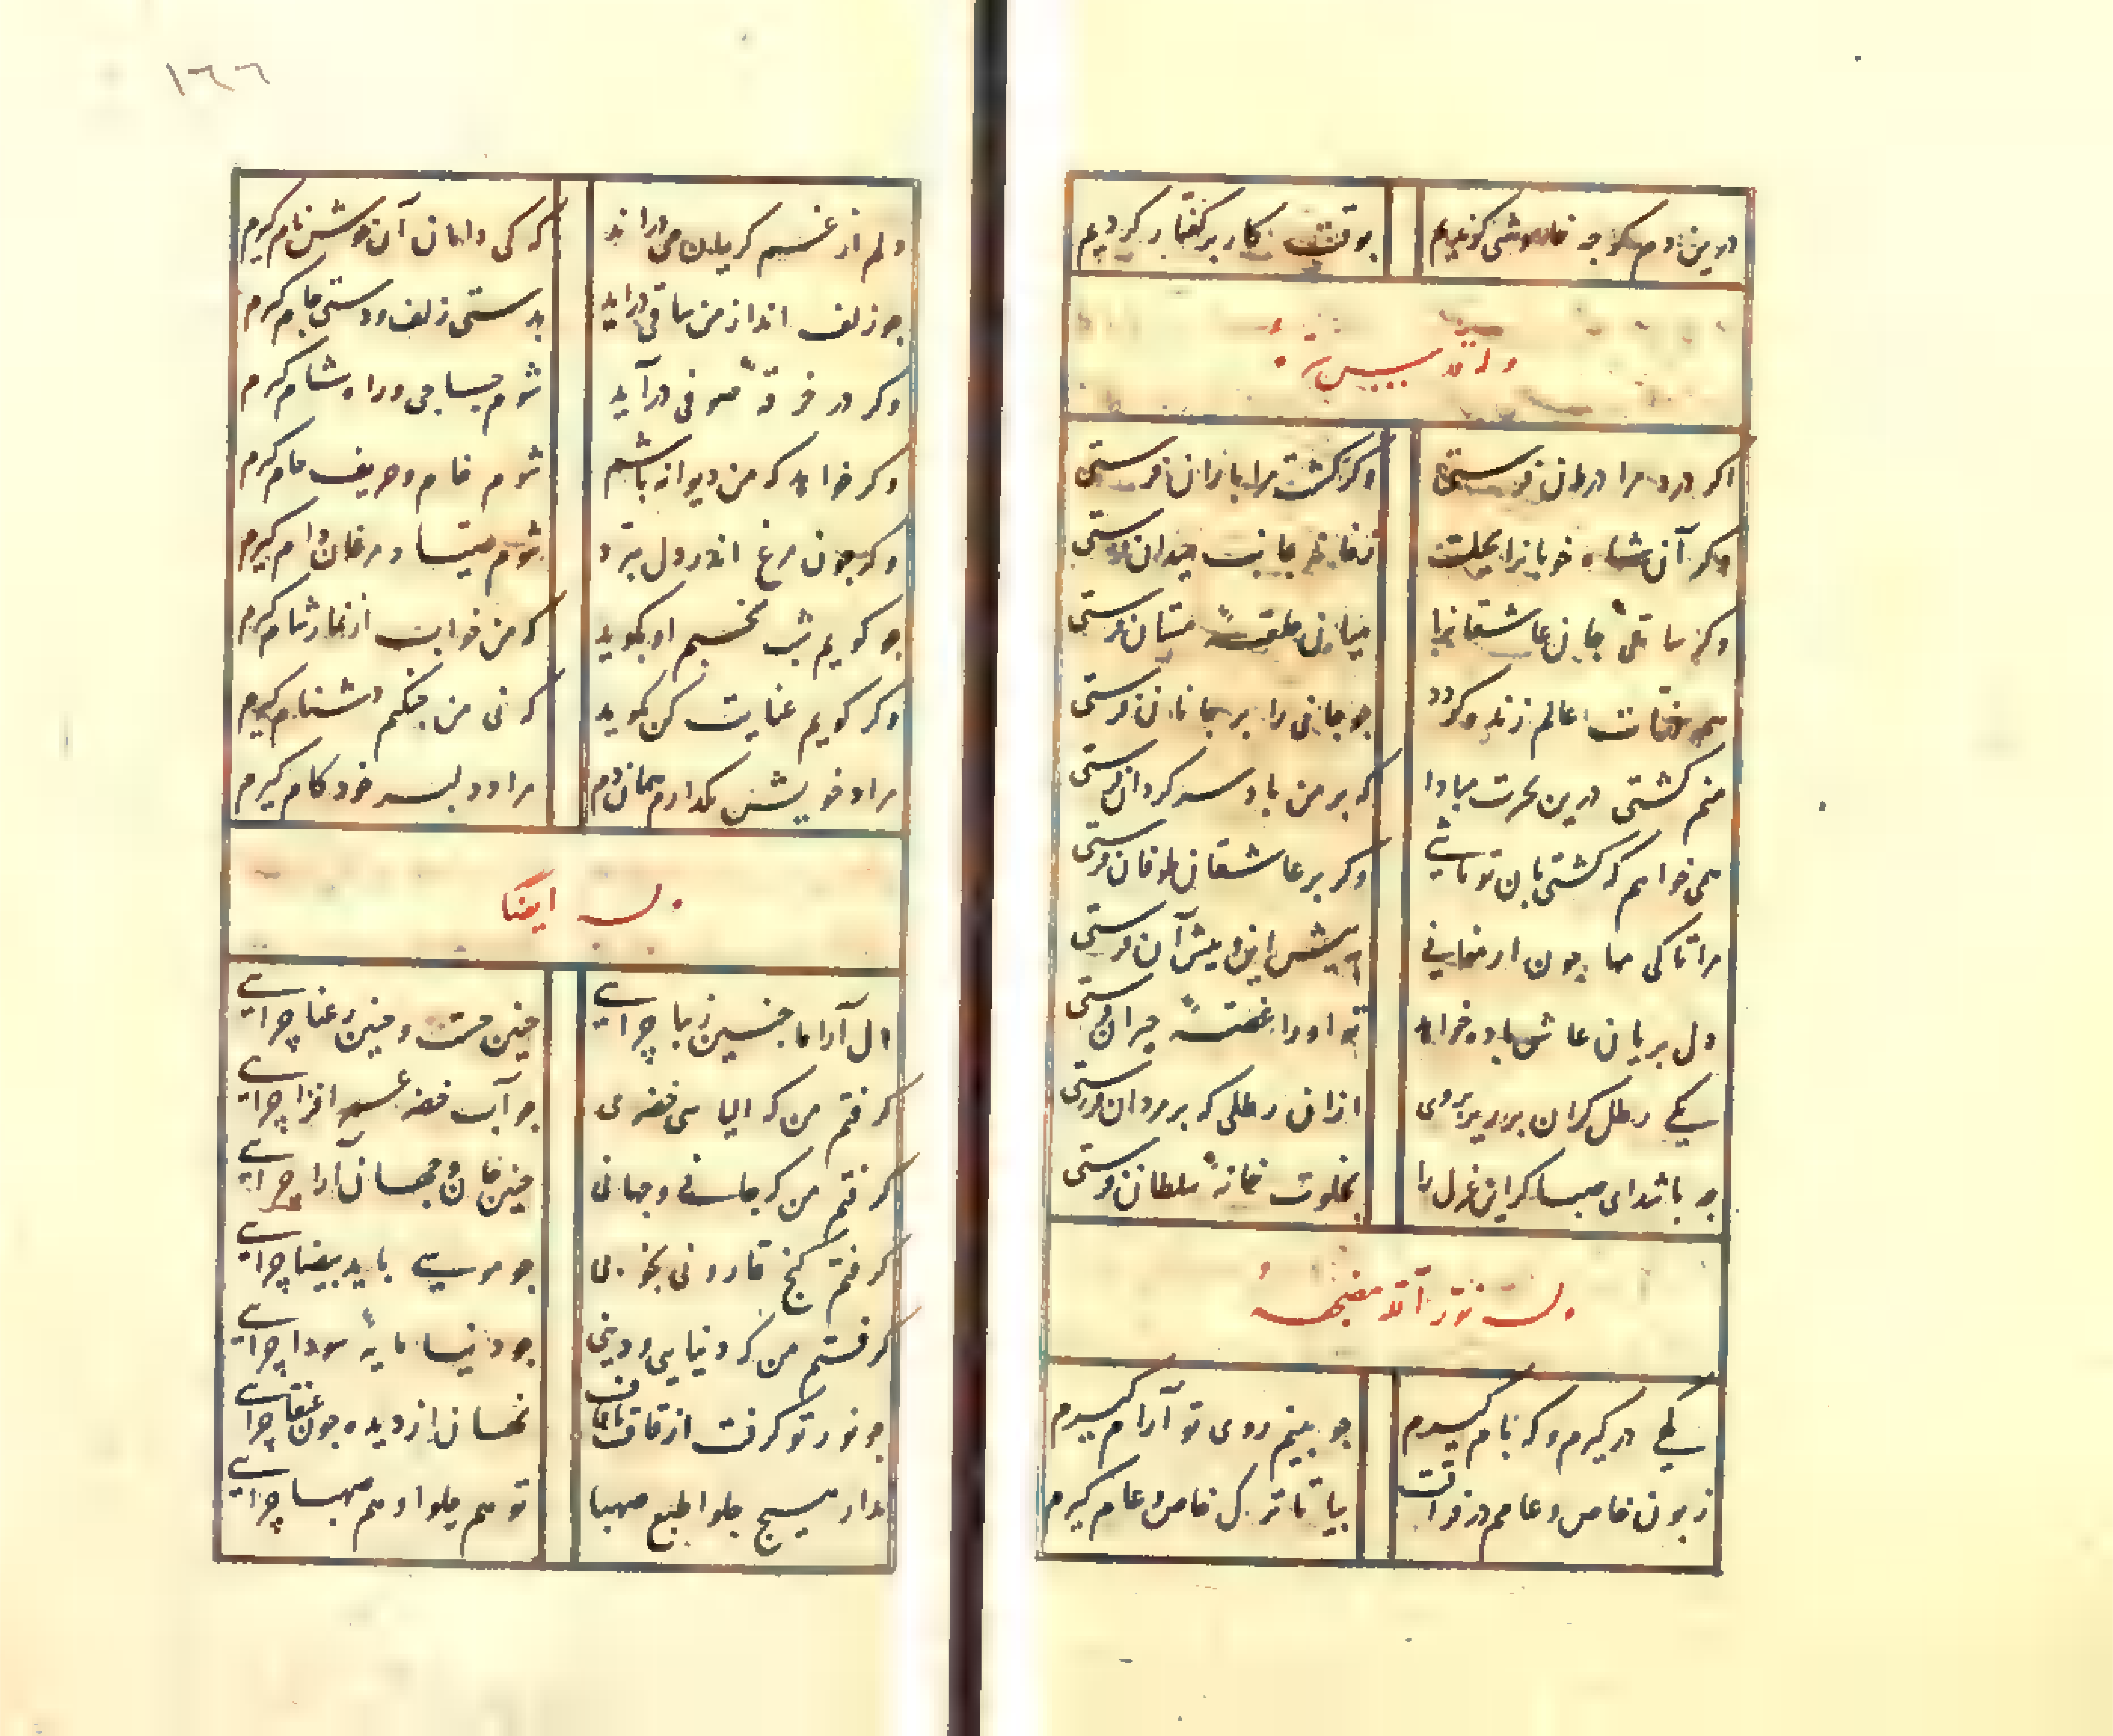 درین دم کرچه خاموشی کزیدیم بوقت کار بر کفتار کردیم
اکر درد مرا درمان فرستی وکر کشت مرا باران فرستی
وکر آن شاه خوبانرا بحیلت بجانب میدان فرستی
وکر ساقی جان عاشقانرا میان حلقهٔ مستان فرستی
همه ذرات عالم زنده کردد چو جانی را بر جانان فرستی
منم کشتی درین بحرت مبادا که بر من باد سرکردان فرستی
همی خواهم که کشتی بان تو باشی وکر بر عاشقان طوفان فرستی
مرا تا کی مها چون ارمغانی به پیش این و پیش آن فرستی
دل بریان عاشق باده خواهد تو او را غصهٔ چران فرستی
یکی رطل کران بر ریز بر وی ازان رطلی که بر مردان فرستی
چه باشد ای صبا کر این غزل را بخلوت خانهٔ سلطان فرستی
وله نور الله مضجعه
کلی در کیرم و که نام کیرم چو بینم روی تو آرام کیرم
زبون خاص و عامم در فراقت بیا تا ترک خاص و عام کیرم
١٦٦
دلم از غم کریبان می دراند که کی دامان آن خوش نام کیرم
چو زلف انداز من ساقی درآید بدستی زلف و دستی جام کیرم
وکر در خرقهٔ صوفی درآید شوم صباحی و راه شام کیرم
وکر خواهد که من دیوانه باشم شوم خام و حریف عام کیرم
وکر چون مرغ اندر دل بپرد شوم صیاد و مرغان دام کیرم
چو کویم شب نخسبم او بکوید که من خواب از نماز شام کیرم
وکر کویم عنایت کن بکوید که نی من جنکیم دشنام کیرم
مراد خویش بکذارم همان دم مراد دلبر خود کام کیرم
وله ایضا
دل آراما چنین زیبا چرایی چنین مست و چنین رعنا چرایی
کرفتم من که الیاسی خضری چو آب خضر عمر افزا چرایی
کرفتم من که جانی و جهانی چنین جان و جهان آرا چرایی
کرفتم کنج قارونی بخوبی چو موسی با ید بیضا چرایی
کرفتم من که دنیایی و دینی چو دنیا مایهٔ سودا چرایی
چو نور تو کرفت از قاف تا قاف نهان از دیده چون عنقا چرایی
ندارد هیچ حلوا طبع صهبا تو هم حلوا و هم صهبا چرایی